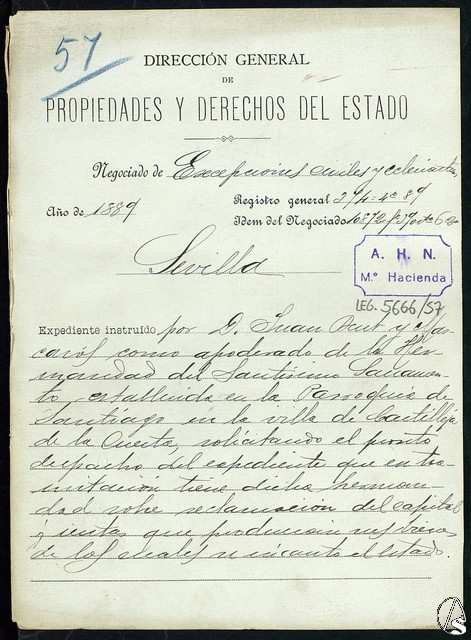 57
DIRECCIÓN GENERAL
DE
PROPIEDADES Y DERECHOS DEL ESTADO
Negociado de Excepciones civiles y eclesiásticas
Año de 1889
Registro general
Idem del Negociado
Sevilla
A. H. N.
Mº Hacienda
LEG. 5666/57
Expediente instruído por D. Juan y
como apoderado de la Her-
mandad del Santísimo Sacramen-
to, establecida en la Parroquia de
Santiago en la villa de Castilleja
de la Cuesta, solicitando el pronto
despacho del expediente que en tra-
mitación tiene dicha herman-
dad sobre reclamación del capital
y rentas que producian sus bienes
de los cuales se incautó el Estado.